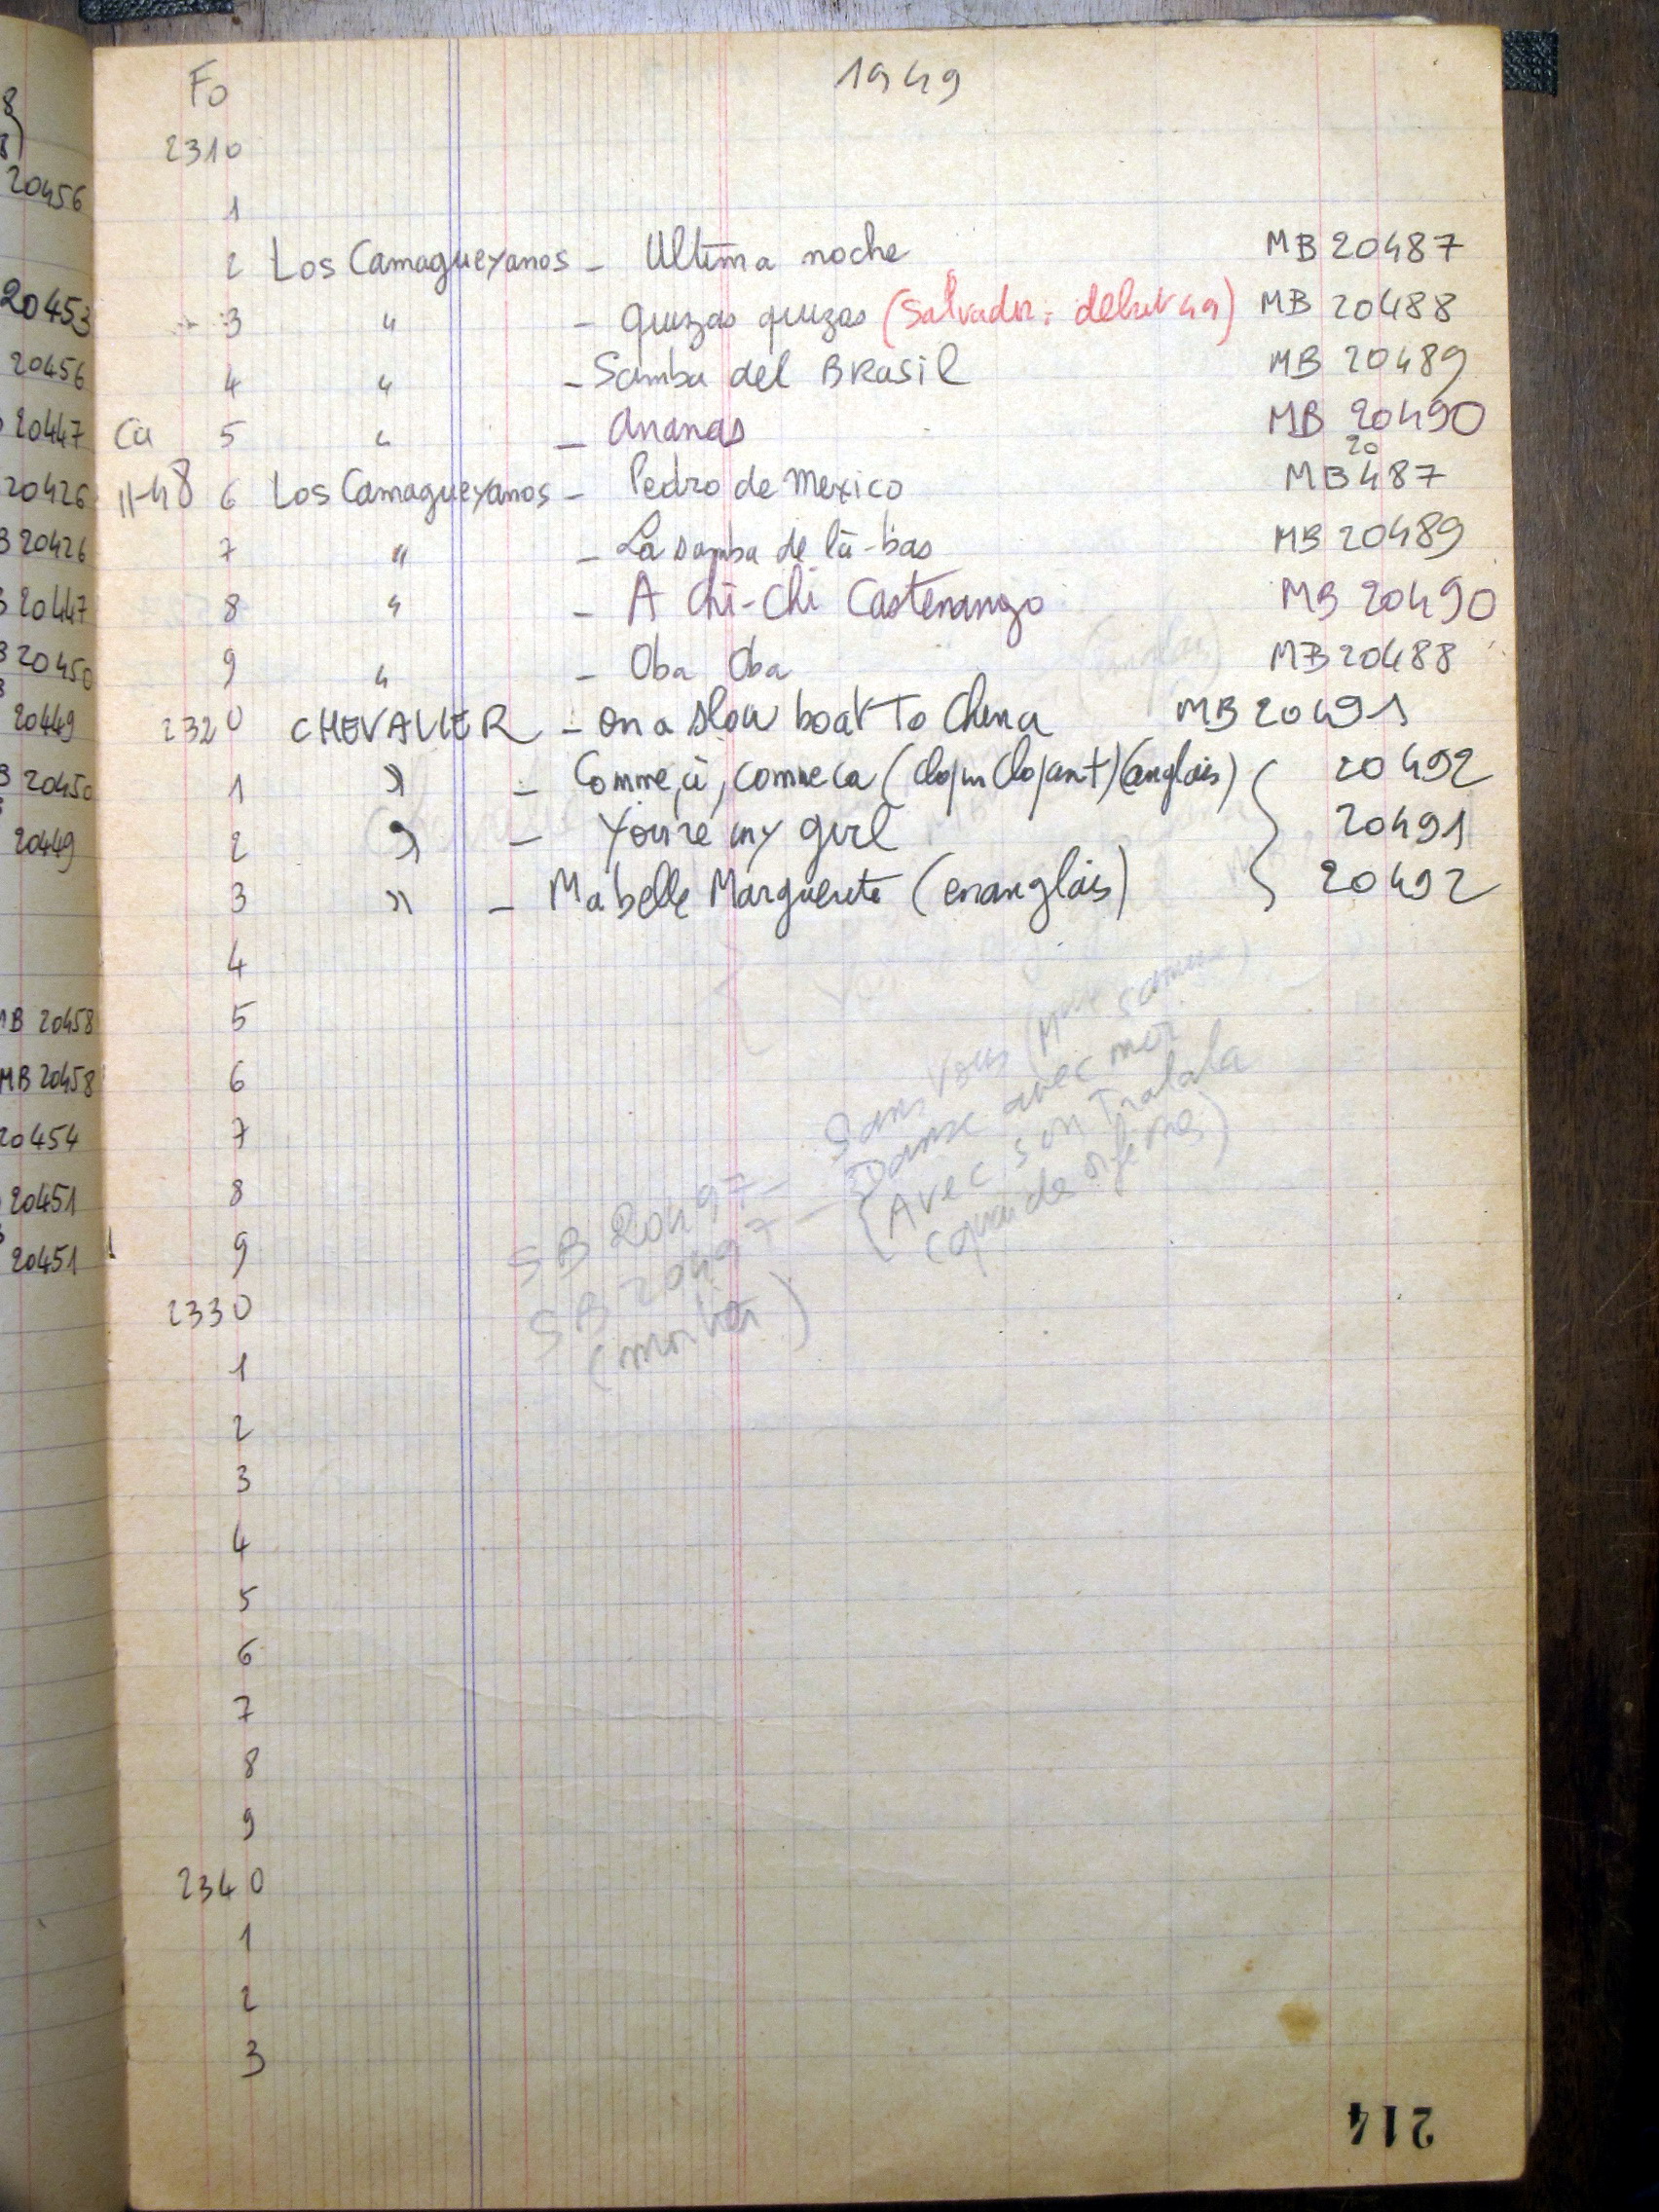 8
8)
20456
20453
20456
20447
20426
B 20426
B 20447
B 20450
20449
B 20450
20449
MB 20458
MB 20458
20454
20451
20451
Fo 1949
2310
1
2 Los Camagueyanos - Ultima noche MB 20487
3 " - quizas quizas (Salvador: debut 49) MB 20488
4 " - Samba del BRasil MB 20489
Ca 5 " - Ananas MB 20490
20
11-48 6 Los Camagueyanos - Pedro de Mexico MB 487
7 " - La samba de là-bas MB 20489
8 " - A Chi-Chi Castenango MB 20490
9 " - Oba Oba MB 20488
2320 CHEVALIER - on a slow boat to China MB 20491
1 " - Comme çi, comme ca (clopin clopant) (anglais) 20492
2 " - You're my girl 20491
3 " - Ma belle Marguerite (en anglais) 20492
4
5
6
7
8
9
2330
1
2
3
4
5
6
7
8
9
2340
1
2
3
SB 20497 - Sans Vous
SB 20497 - Danse avec moi
(Avec son Tralala
quai des orfèvres)
214